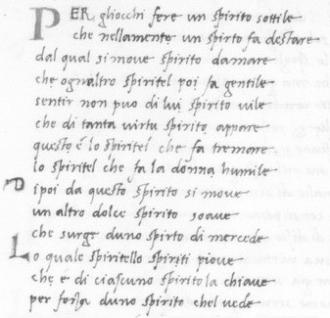 PER gliocchi fere un spirito sottile
che nellamente un spirto fa destare
dal qual si move spirito damare
che ognaltro spiritel poi fa gentile
sentir non puo di lui spirito vile
che di tanta virtu spirito appare
questo é lo spiritel che fa tremare
lo spiritel che fa la donna humile
Dipoi da questo spirito si move
un altro dolce spirito soave
che surge duno spirto di mercede
Lo quale spiritello spiriti piove
che é di ciascuno spirito la chiave
per forza duno spirito chel vede